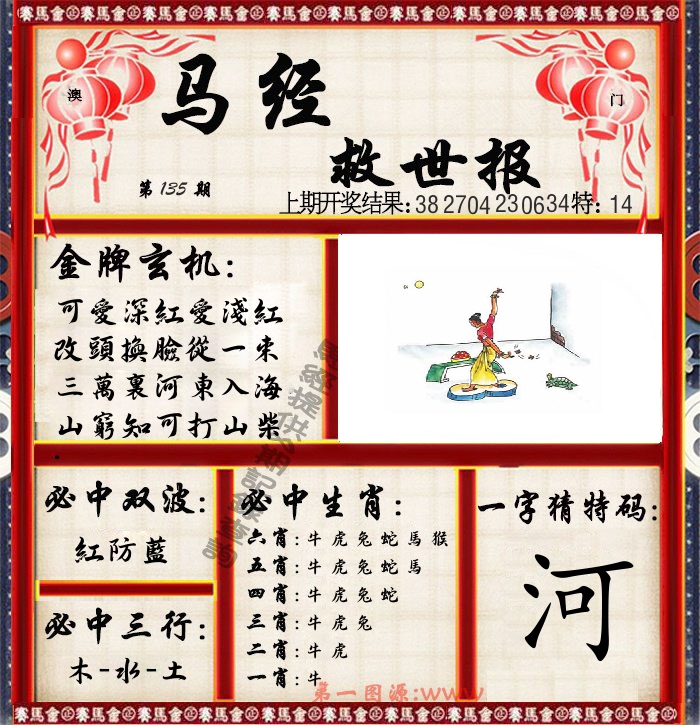 賽馬會㊣賽馬會㊣賽馬會㊣賽馬會㊣賽馬會㊣賽馬會㊣賽馬會㊣賽馬會㊣賽馬會
澳
门
马经
救世报
第 135 期
上期开奖结果:38 27 04 23 06 34 特: 14
金牌玄机:
可愛深紅愛淺紅
改頭換臉從一来
三萬裏河東入海
山窮知可打山柴
必中双波:
紅防藍
必中三行:
木-水-土
必中生肖:
六肖:牛虎兔蛇馬猴
五肖:牛虎兔蛇馬
四肖:牛虎兔蛇
三肖:牛虎兔
二肖:牛虎
一肖:牛
一字猜特码:
河
第一图源:www